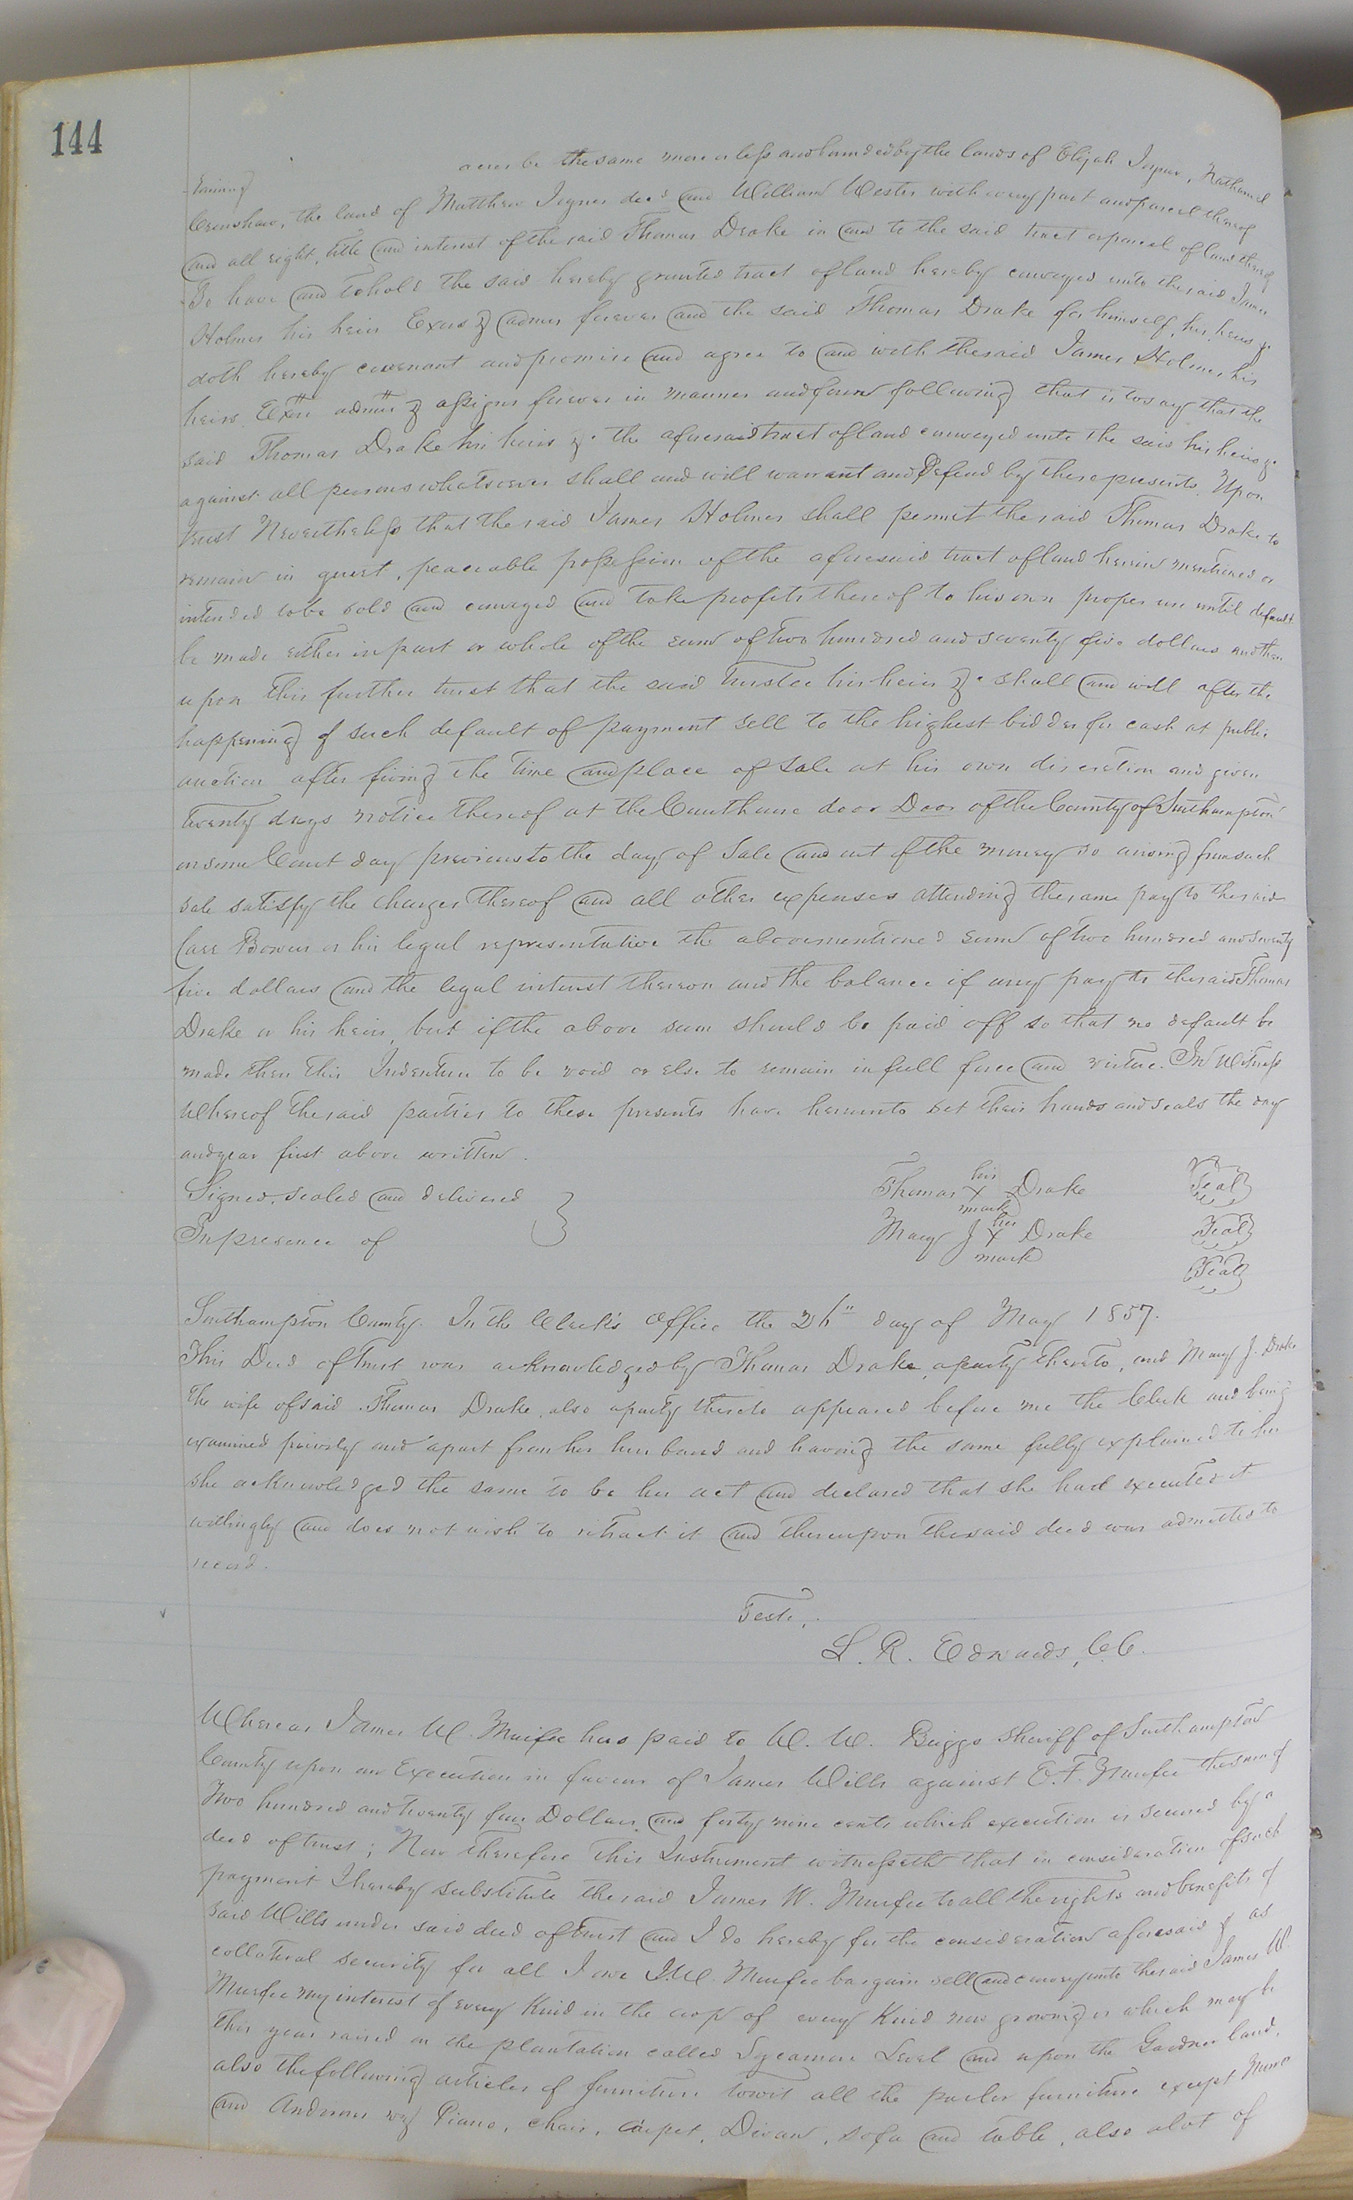 144
taining acres be the same more or less and bounded by the lands of Elijah Joyner, Nathaniel
Crenshaw, the land of Matthew Joyner decd and William Wester with every part and parcel thereof
and all right, title and interest of the said Thomas Drake in and to the said tract or parcel of land thereof
To have and to hold the said hereby granted tract of land hereby conveyed unto the said James
Holmes his heirs Exors & admrs forever and the said Thomas Drake for himself, his heirs &c
doth hereby covenant and promise and agree to and with the said James Holmes his
heirs, Exrs admrs & assigns forever in manner and form following that is to say that the
said Thomas Drake his heirs &c the aforesaid tract of land conveyed unto the said his heirs &c
against all persons whatsoever shall and will warrant and Defend by these presents. Upon
trust Nevertheless that the said James Holmes shall permit the said Thomas Drake to
remain in quiet, peaceable possession of the aforesaid tract of land herein mentioned or
intended to be sold and conveyed and take profits thereof to his own proper use until default
be made either in part or whole of the sum of two hundred and seventy five dollars and then
upon this further trust that the said trustee his heirs &c shall and will after the
happening of such default of payment sell to the highest bidder for cash at public
auction after fixing the time and place of sale at his own discretion and given
twenty days notice thereof at the Courthouse door Door of the County of Southampton
on some Court day previous to the day of Sale and out of the money so arising from such
sale satisfy the charges thereof and all other expenses attending the same pay to the said
Carr Bowers or his legal representative the abovementioned sum of two hundred and seventy
five dollars and the legal interest thereon and the balance if any pay to the said Thomas
Drake or his heirs, but if the above sum should be paid off so that no default be
made then this Indenture to be void or else to remain in full force and virtue. In Witness
Whereof the said parties to these presents have hereunto set their hands and seals the day
and year first above written.
Signed, sealed and delivered
In presence of
Thomas his X mark Drake Seal
Mary J her X mark Drake Seal
Seal
Southampton County. In the Clerk's Office the 26" day of May 1857.
This Deed of trust was acknowledged by Thomas Drake, a party thereto, and Mary J. Drake
the wife of said Thomas Drake, also a party thereto appeared before me the Clerk and being
examined privily and apart from her husband and having the same fully explained to her
she acknowledged the same to be her act and declared that she had executed it
willingly and does not wish to retract it and thereupon the said deed was admitted to
record.
Teste,
L. R. Edwards, C.C.
Whereas James W. Murfee has paid to W. W. Briggs Sheriff of Southampton
County upon an Execution in favour of James Wills against E. F. Murfee the sum of
Two hundred and twenty four Dollars and forty nine cents which execution is secured by a
deed of trust; Now therefore this Instrument witnesseth that in consideration of such
payment I hereby substitute the said James W. Murfee to all the rights and benefits of
said Wills under said deed of trust and I do hereby for the consideration aforesaid & as
collateral security for all I owe J. W. Murfee bargain sell and convey unto the said James W.
Murfee my interest of every Kind in the crop of every Kind now growing or which may be
this year raised on the plantation called Sycamore Level and upon the Gardner land,
also the following articles of furniture towit all the parlor furniture except
and Andirons viz Piano, chair, carpet, Divan, sofa and table, also a lot of